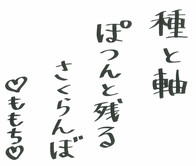 種と軸
ぽつんと残る
さくらんぼ
♡ももち♡